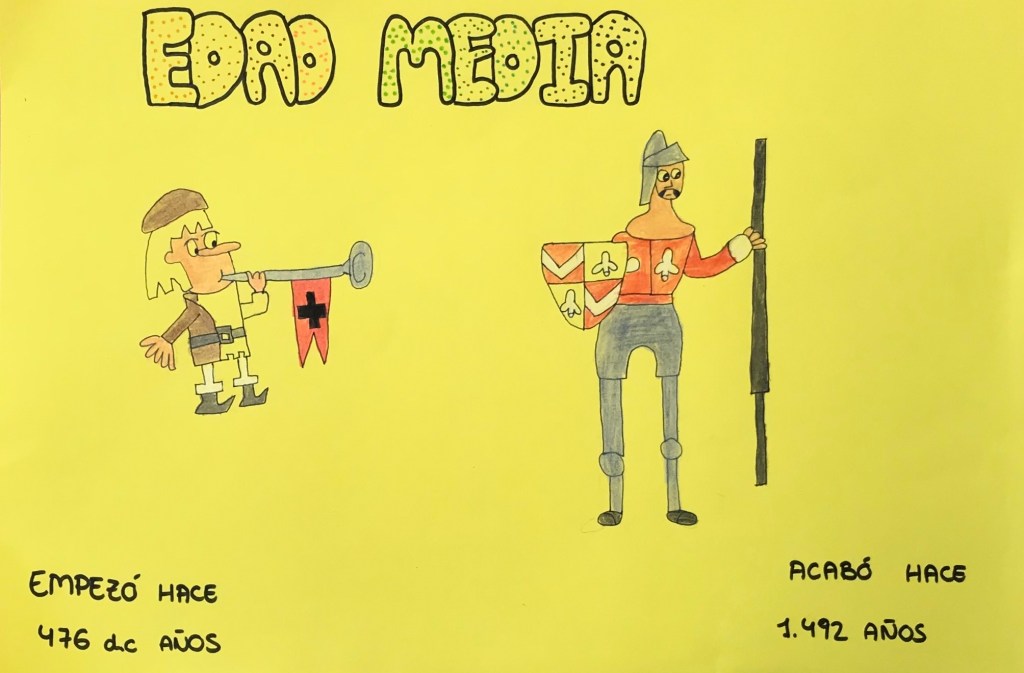 EDAD MEDIA
EMPEZÓ HACE
476 d.c AÑOS
ACABÓ HACE
1.492 AÑOS